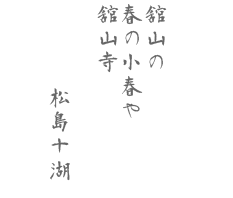 舘山の
春の小春や
舘山寺
松島十湖